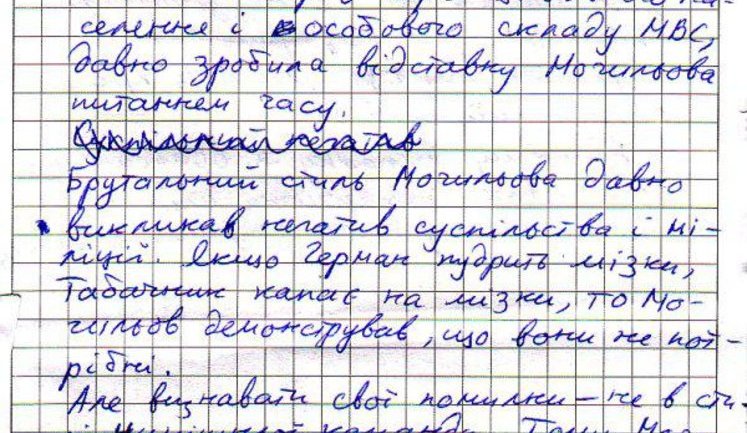 селення і особового складу МВС,
давно зробила відставку Могильова
питанням часу.
Суспільний негатив
Брутальний стиль Могильова давно
викликав негатив суспільства і мі-
ліції. Якщо Герман пудрить мізки,
Табачник капає на мізки, то Мо-
гильов демонстрував, що вони не пот-
рібні.
Але визнавати свої помилки – не в сти-
команди. Тому